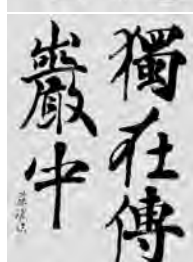 獨在傳
巖中